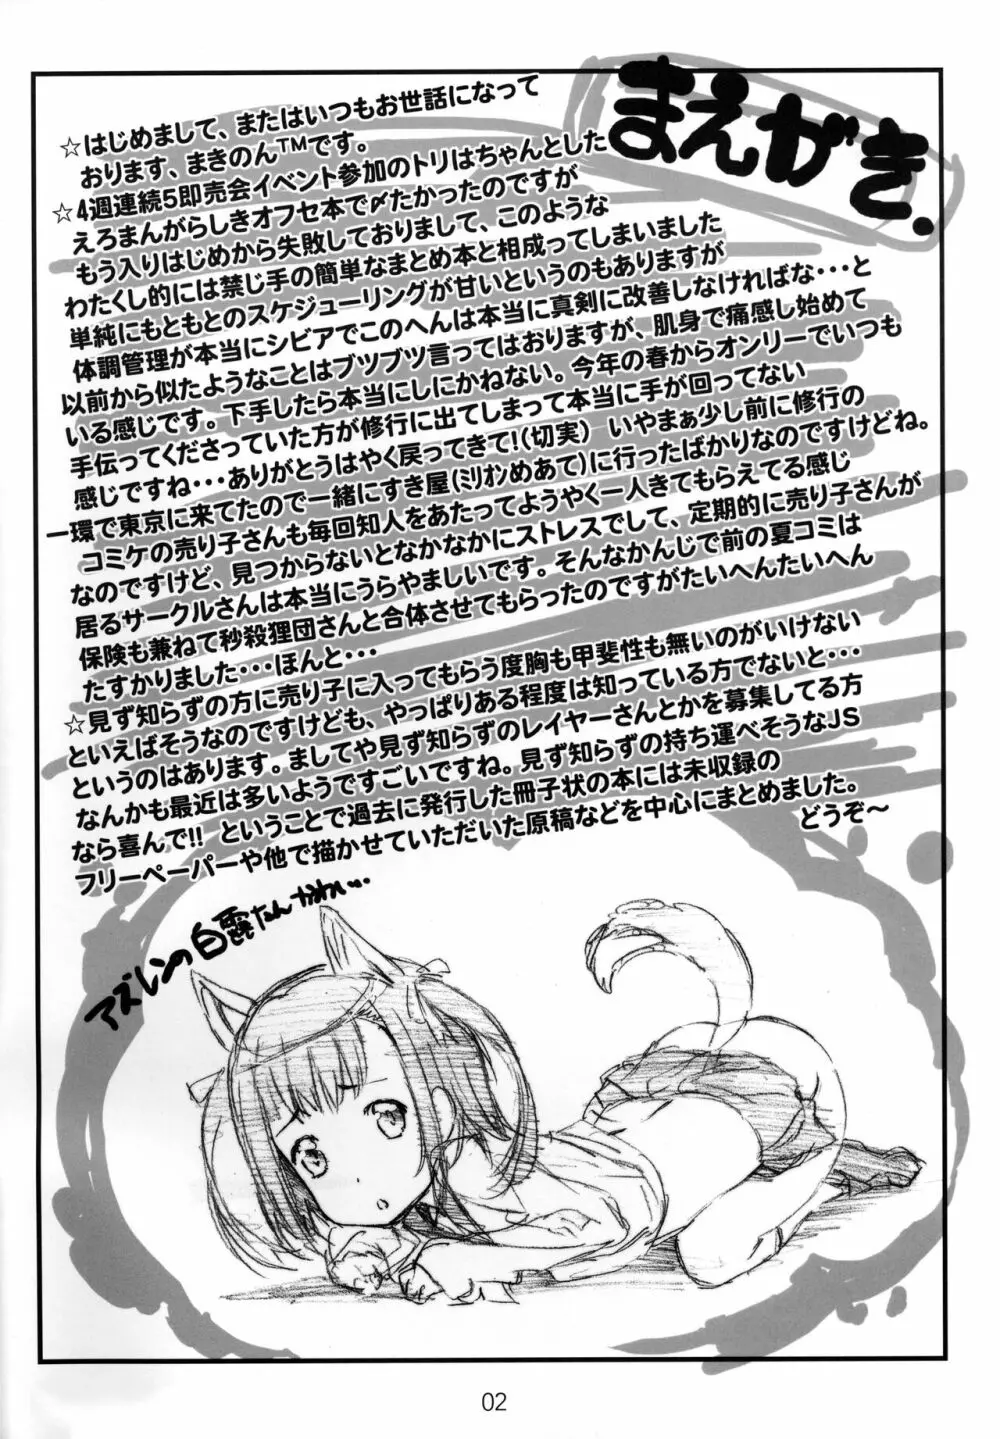 まえがき.
☆はじめまして、またはいつもお世話になって
おります、まきのん™です。
☆4週連続5即売会イベント参加のトリはちゃんとした
えろまんがらしきオフセ本で〆たかったのですが
もう入りはじめから失敗しておりまして、このような
わたくし的には禁じ手の簡単なまとめ本と相成ってしまいました
単純にもともとのスケジューリングが甘いというのもありますが
体調管理が本当にシビアでこのへんは本当に真剣に改善しなければな・・・と
以前から似たようなことはブツブツ言ってはおりますが、肌身で痛感し始めて
いる感じです。下手したら本当にしにかねない。今年の春からオンリーでいつも
手伝ってくださっていた方が修行に出てしまって本当に手が回ってない
感じですね・・・ありがとうはやく戻ってきて!(切実) いやまぁ少し前に修行の
一環で東京に来てたので一緒にすき屋(ミリオンめあて)に行ったばかりなのですけどね。
コミケの売り子さんも毎回知人をあたってようやく一人きてもらえてる感じ
なのですけど、見つからないとなかなかにストレスでして、定期的に売り子さんが
居るサークルさんは本当にうらやましいです。そんなかんじで前の夏コミは
保険も兼ねて秒殺狸団さんと合体させてもらったのですがたいへんたいへん
たすかりました・・・ほんと・・・
☆見ず知らずの方に売り子に入ってもらう度胸も甲斐性も無いのがいけない
といえばそうなのですけども、やっぱりある程度は知っている方でないと・・・
というのはあります。ましてや見ず知らずのレイヤーさんとかを募集してる方
なんかも最近は多いようですごいですね。見ず知らずの持ち運べそうなJS
なら喜んで!! ということで過去に発行した冊子状の本には未収録の
フリーペーパーや他で描かせていただいた原稿などを中心にまとめました。
どうぞ～
アズレンの白露たんかわい...
02